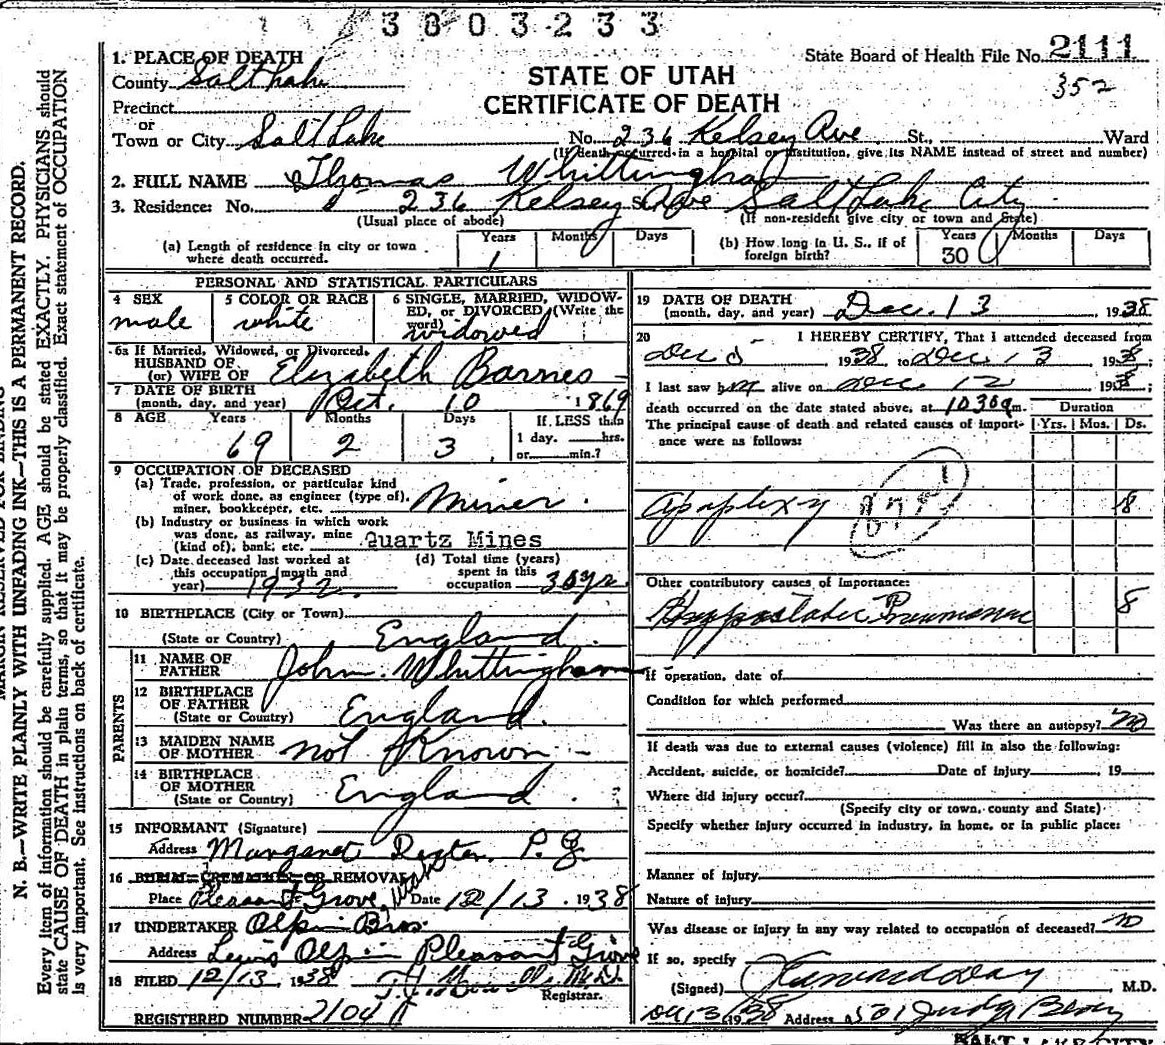 3803233
1. PLACE OF DEATH
State Board of Health File No. 2111
County Salt Lake
STATE OF UTAH
352
Precinct
CERTIFICATE OF DEATH
or
Town or City Salt Lake No. 236 Kelsey Ave. St., Ward
(If death occurred in a hospital or institution, give its NAME instead of street and number)
2. FULL NAME Thomas Whittingham
3. Residence: No. 236 Kelsey St. Ave Salt Lake City.
(Usual place of abode) (If non-resident give city or town and State)
(a) Length of residence in city or town where death occurred. Years 1 Months Days
(b) How long in U. S., if of foreign birth? Years 30 Months Days
PERSONAL AND STATISTICAL PARTICULARS
4 SEX male
5 COLOR OR RACE white
6 SINGLE, MARRIED, WIDOWED, or DIVORCED (Write the word) widowed
6a If Married, Widowed, or Divorced,
HUSBAND OF
(or) WIFE OF Elizabeth Barnes
7 DATE OF BIRTH
(month, day, and year) Oct. 10 1869
8 AGE Years 69 Months 2 Days 3
If LESS than
1 day. hrs.
or min.?
9 OCCUPATION OF DECEASED
(a) Trade, profession, or particular kind
of work done, as engineer (type of),
miner, bookkeeper, etc. Miner.
(b) Industry or business in which work
was done, as railway, mine
(kind of), bank, etc. Quartz Mines
(c) Date deceased last worked at
this occupation (month and
year) 1932.
(d) Total time (years)
spent in this
occupation 30 yrs
10 BIRTHPLACE (City or Town)
(State or Country) England.
PARENTS
11 NAME OF
FATHER John Whittingham
12 BIRTHPLACE
OF FATHER
(State or Country) England.
13 MAIDEN NAME
OF MOTHER not Known
14 BIRTHPLACE
OF MOTHER
(State or Country) England.
15 INFORMANT (Signature)
Address Margaret P. G.
16 BURIAL, CREMATION OR REMOVAL
Place Pleasant Grove, Utah Date 12/13 1938
17 UNDERTAKER Olpin Bros.
Address Lewis Olpin Pleasant Grove
18 FILED 12/13, 1938 M.D.
Registrar.
REGISTERED NUMBER 2104
19 DATE OF DEATH
(month, day, and year) Dec. 13, 1938
20 I HEREBY CERTIFY, That I attended deceased from
Dec 5 1938 to Dec. 13 1938;
I last saw him alive on Dec 12 1938;
death occurred on the date stated above, at 1030a m.
Duration
The principal cause of death and related causes of importance were as follows:
Yrs. Mos. Ds.
Apoplexy 8
Other contributory causes of importance:
Hypostatic Pneumonia 8
If operation, date of
Condition for which performed
Was there an autopsy? no
If death was due to external causes (violence) fill in also the following:
Accident, suicide, or homicide? Date of injury, 19
Where did injury occur?
(Specify city or town, county and State)
Specify whether injury occurred in industry, in home, or in public place:
Manner of injury
Nature of injury
Was disease or injury in any way related to occupation of deceased? no
If so, specify
(Signed) Day M.D.
1938 Address 501 Judge
SALT LAKE CITY
MARGIN RESERVED FOR BINDING
N. B.—WRITE PLAINLY WITH UNFADING INK—THIS IS A PERMANENT RECORD.
Every item of information should be carefully supplied. AGE should be stated EXACTLY. PHYSICIANS should
state CAUSE OF DEATH in plain terms, so that it may be properly classified. Exact statement of OCCUPATION
is very important. See instructions on back of certificate.